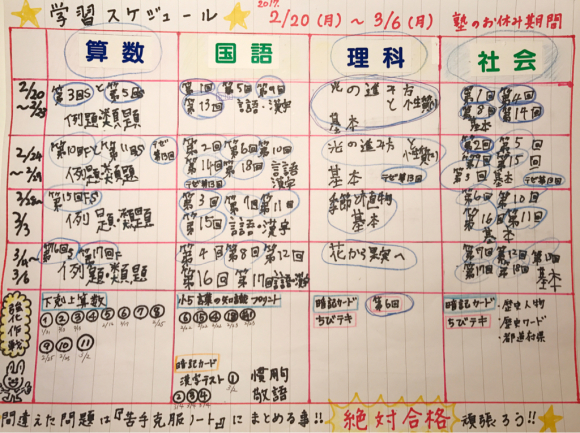 学習スケジュール
2017.
2/20(月)〜3/6(月)
塾のお休み期間
算数
国語
理科
社会
2/20
第3回Sと第5回S
例題・類題
第1回 第5回 第9回
第13回 言語・漢字
光の進み方
と
基本
第1回
第8回 第14回
基本
2/24
第10回Sと第11回S
例題・類題
第2回 第6回 第10回
第14回 第18回 言語
漢字
光の進み方
と
基本
第2回 第5回
第15回
第3回 基本
第15回S
例題・類題
第3回 第7回 第11回
第15回 言語・漢字
季節と植物
基本
第6回 第10回
第16回 第11回
基本
3/6
第16回S 第17回S
例題・類題
第4回 第8回 第12回
第16回 第17回 言語・漢字
花から果実へ
第12回
第17回 第18回
基本
強化作戦
下剋上算数
① ② ③ ④ ⑤ ⑥ ⑦ ⑧
⑨ ⑩ ⑪
小5 言葉の知識プリント
暗記カード
漢字テスト ①
② ③ ④
慣用句
敬語
暗記カード
ちびテキ
第6回
暗記カード
ちびテキ
・歴史人物
・歴史ワード
・都道府県
間違えた問題は『苦手克服ノート』にまとめる事!!
絶対合格
頑張ろう!!